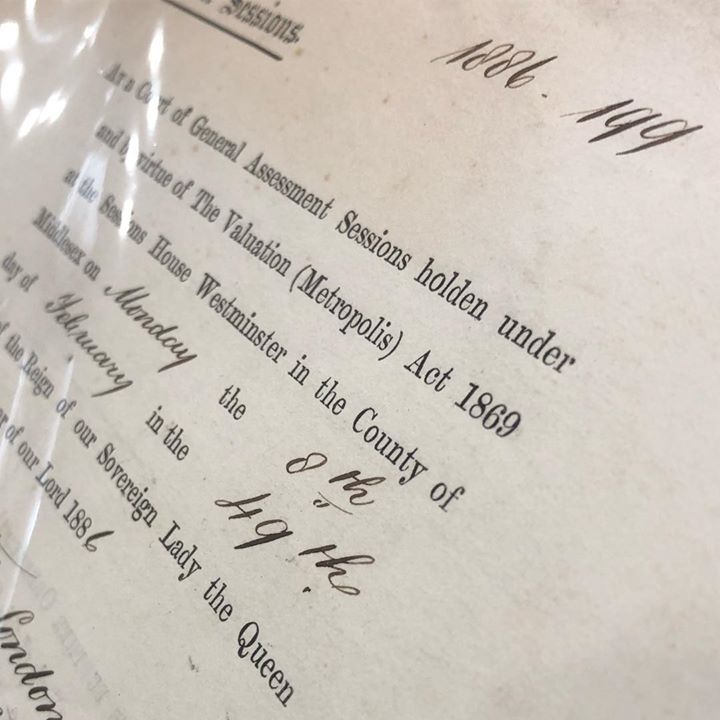 Sessions.
1886. 199
At a Court of General Assessment Sessions holden under
and by virtue of The Valuation (Metropolis) Act 1869
at the Sessions House Westminster in the County of
Middlesex on Monday the 8th
day of February in the 49th
of the Reign of our Sovereign Lady the Queen
of our Lord 1886
London